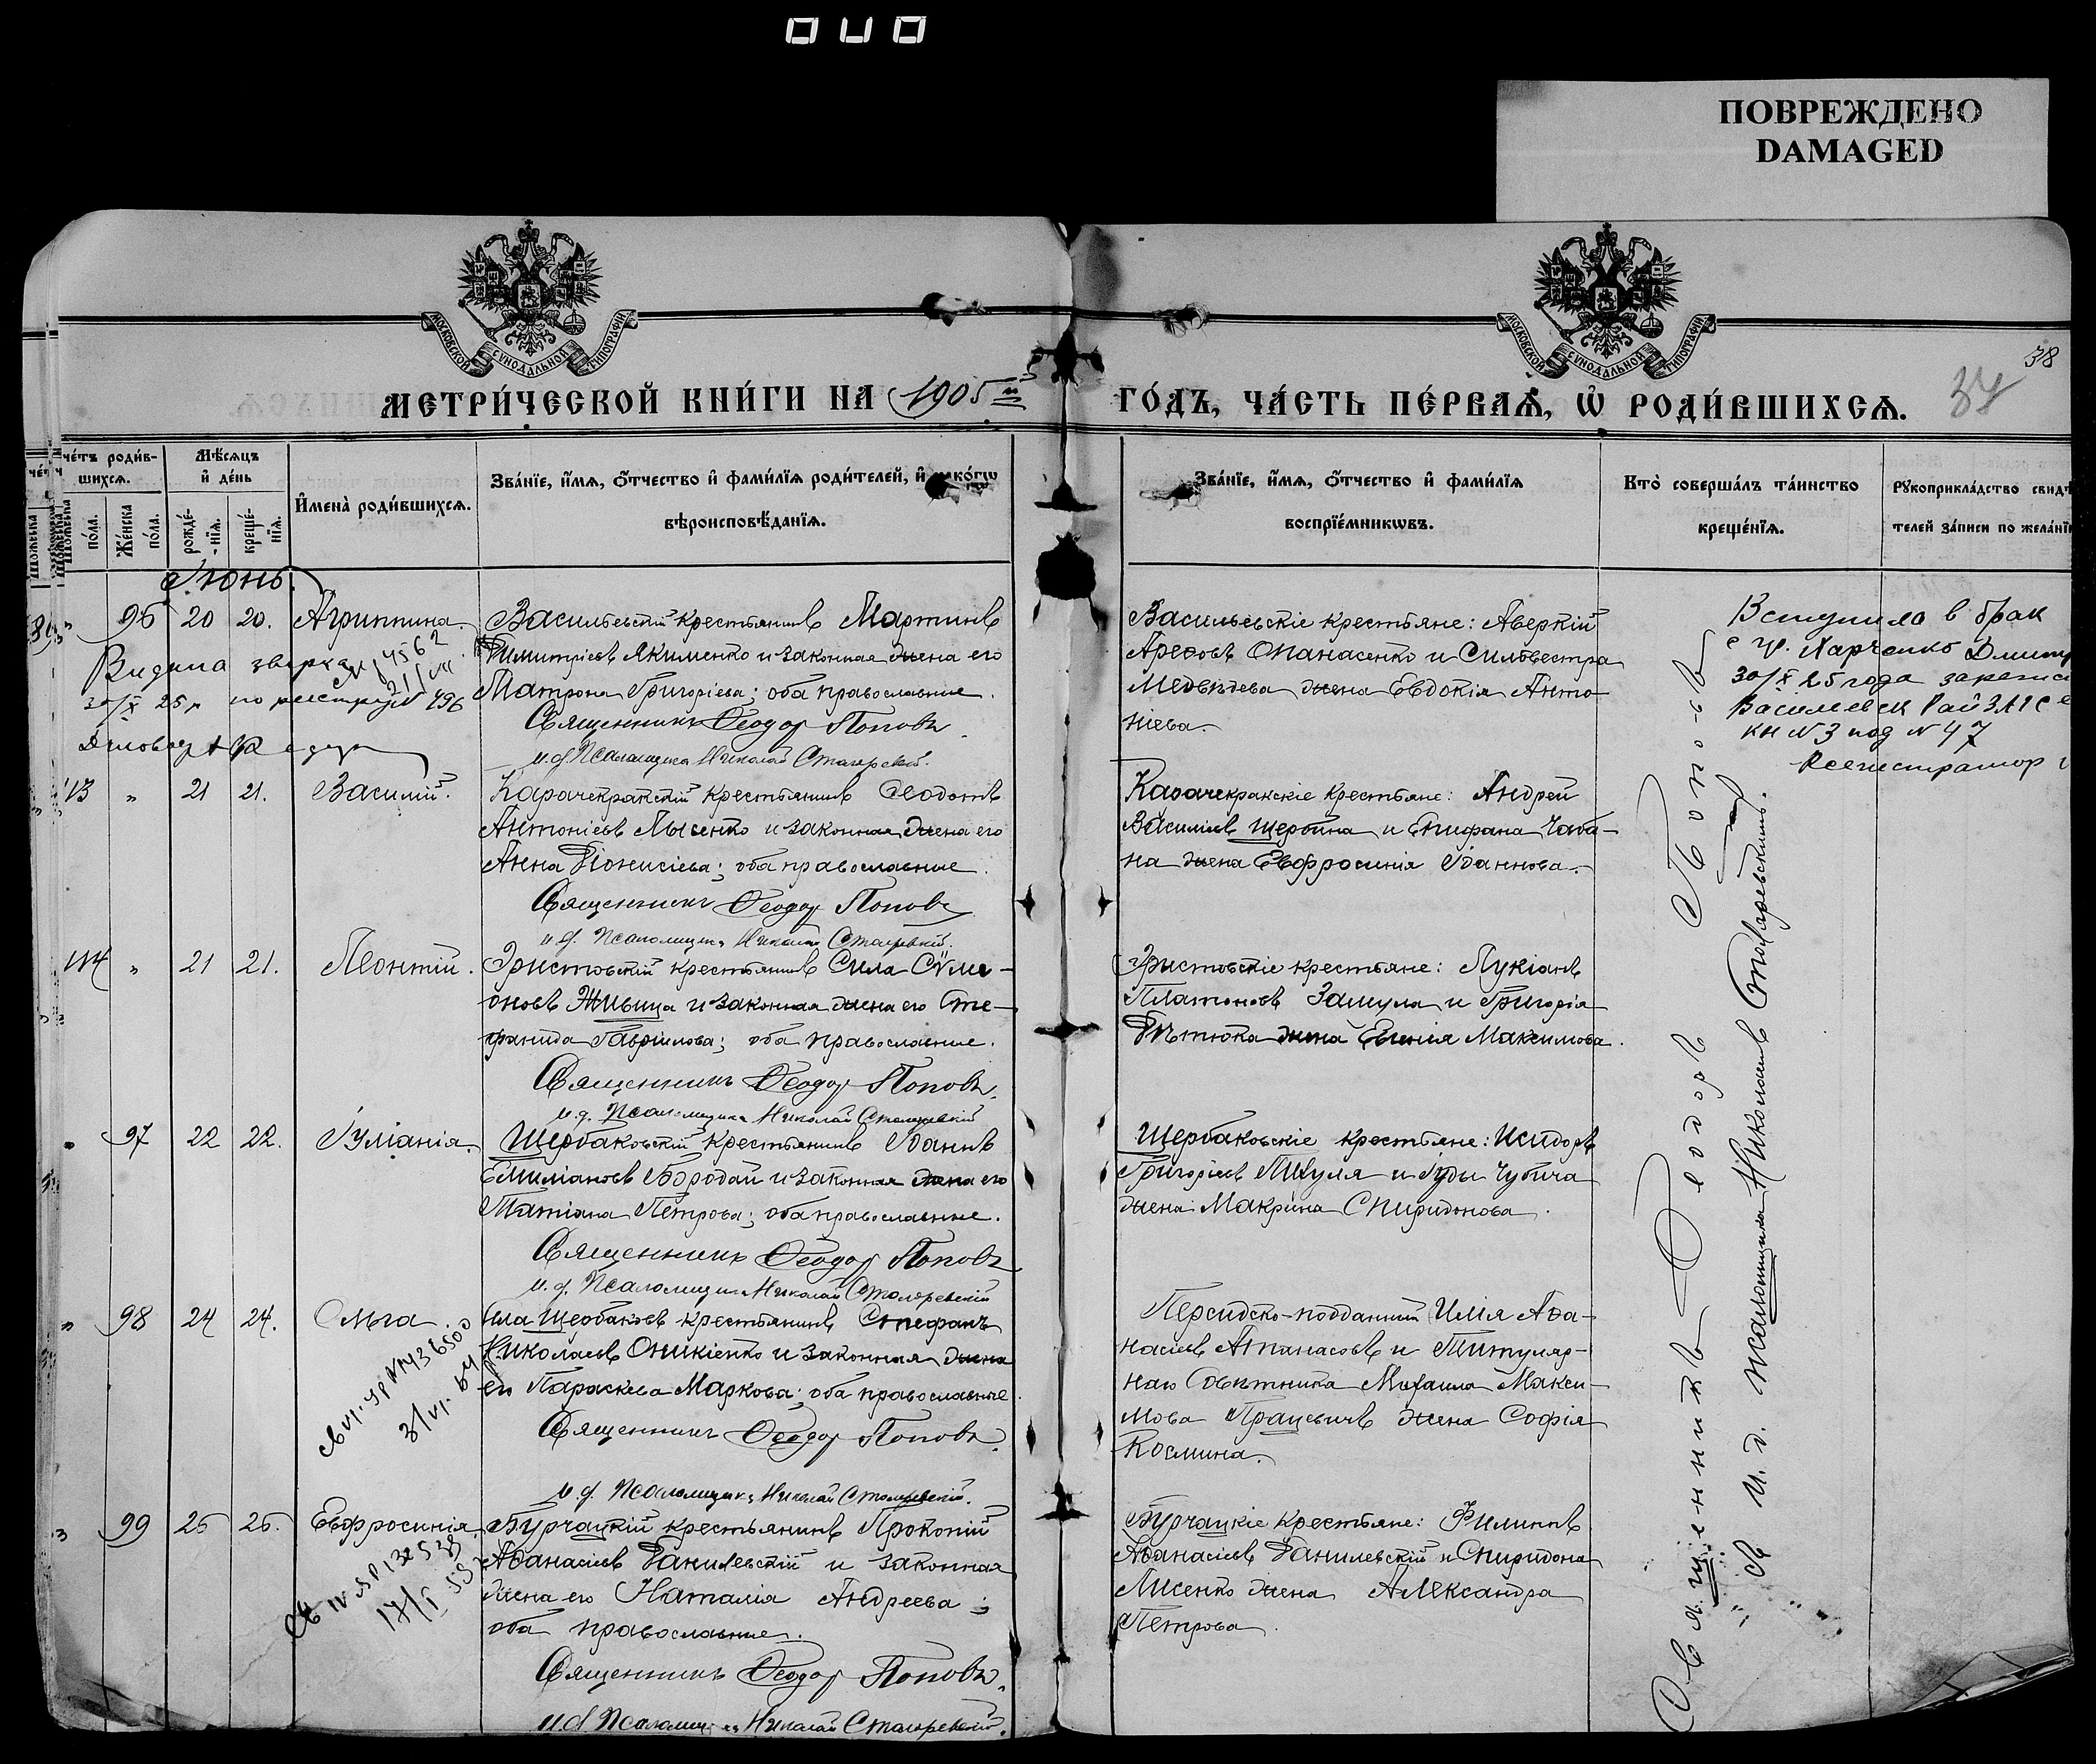 ПОВРЕЖДЕНО
DAMAGED
МОСКОВСКОЙ СѴНОДАЛЬНОЙ ТИПОГРАФІИ
МОСКОВСКОЙ СѴНОДАЛЬНОЙ ТИПОГРАФІИ
38
37
МЕТРИ́ЧЕСКОЙ КНИ́ГИ НА 1905й
ГО́ДЪ, ЧА́СТЬ ПЕ́РВАѦ, Ѡ҆ РОДИ́ВШИХСѦ.
че́тъ роди́в-
шихсѧ.
Мѣ́сѧцъ
и҆ де́нь
И҆мена̀ роди́вшихсѧ.
Зва́нїе, и҆́мѧ, ѻ҆́тчество и҆ фами́лїѧ роди́телей, и҆ како́гѡ
вѣроисповѣ́данїѧ.
Зва́нїе, и҆́мѧ, ѻ҆́тчество и҆ фами́лїѧ
воспрїе́мникѡвъ.
Кто̀ соверша́лъ та́инство
креще́нїѧ.
Рꙋкоприкла́дство свидѣ
телей за́писи по жела́нїю
пола.
Же́нска
пола.
рожде́-
нїѧ.
креще́-
нїѧ.
Іюнь.
" 96 20 20. Агриппина.
Васильевскій крестьянинъ Мартинъ
Димитріевъ Якименко и законная жена его
Матрона Григоріева; оба православные.
Священникъ Ѳеодоръ Поповъ
и.д. Псаломщика Николай Столяревскій.
Видана
30/X 25 р по реестру № 496
№ 4562
21/VII
Васильевскіе крестьяне: Аверкій
Ареѳовъ Опанасенко и Сильвестра
Медвѣдева жена Евдокія Анто-
ніева.
Вступила в брак
с гр. Харченко Дмитр
30/X 25 года
Василевск Рай ЗАГСе
кн №3 под №47
Регистратор
113 " 21 21. Василій.
Карачекракскій крестьянинъ Ѳеодотъ
Антоніевъ Лысенко и законная жена его
Анна Діонисіева; оба православные.
Священникъ Ѳеодоръ Поповъ
и.д. Псаломщика Николай Столяревскій.
Карачекракскіе крестьяне: Андрей
Василіевъ Щербина и Епифана Чаба-
на жена Евфросинія Іоаннова.
114 " 21 21. Леонтій.
Эристовскій крестьянинъ Сила Сѵме-
оновъ Живица и законная жена его Сте-
фанида Гавріилова; оба православные.
Священникъ Ѳеодоръ Поповъ.
и.д. Псаломщика Николай Столяревскій
Эристовскіе крестьяне: Лукіанъ
Платоновъ Замула и Григорія
Дѣтюка жена Евгенія Максимова.
" 97 22 22. Іуліанія.
Щербаковскій крестьянинъ Іоаннъ
Емиліановъ Бородай и законная жена его
Татіана Петрова; оба православные.
Священникъ Ѳеодоръ Поповъ
и.д. Псаломщика Николай Столяревскій
Щербаковскіе крестьяне: Исидоръ
Григоріевъ Пихуля и Іуды Чубича
жена Макрина Спиридонова.
" 98 24 24. Ольга.
Села Щербаковъ крестьянинъ Стефанъ
Николаевъ Оникіенко и законная жена
его Параскева Маркова; оба православные.
Священникъ Ѳеодоръ Поповъ.
и.д. Псаломщика Николай Столяревскій.
Персидско-подданный Илія Аѳа-
насіевъ Атанасовъ и Титуляр-
наго Совѣтника Михаила Макси-
мова Працевичъ жена Софія
Космина.
99 25 25. Евфросинія.
Бурчацкій крестьянинъ Прокопій
Аѳанасіевъ Данилевскій и законная
жена его Наталія Андреева;
оба православные.
Священникъ Ѳеодоръ Поповъ.
и.д. Псаломщика Николай Столяревскій.
Бурчацкіе крестьяне: Филиппъ
Аѳанасіевъ Данилевскій и Спиридона
Лисенко жена Александра
Петрова.
Священникъ Ѳеодоръ Поповъ
Съ и.д. псаломщика Николаемъ Столяревскимъ.